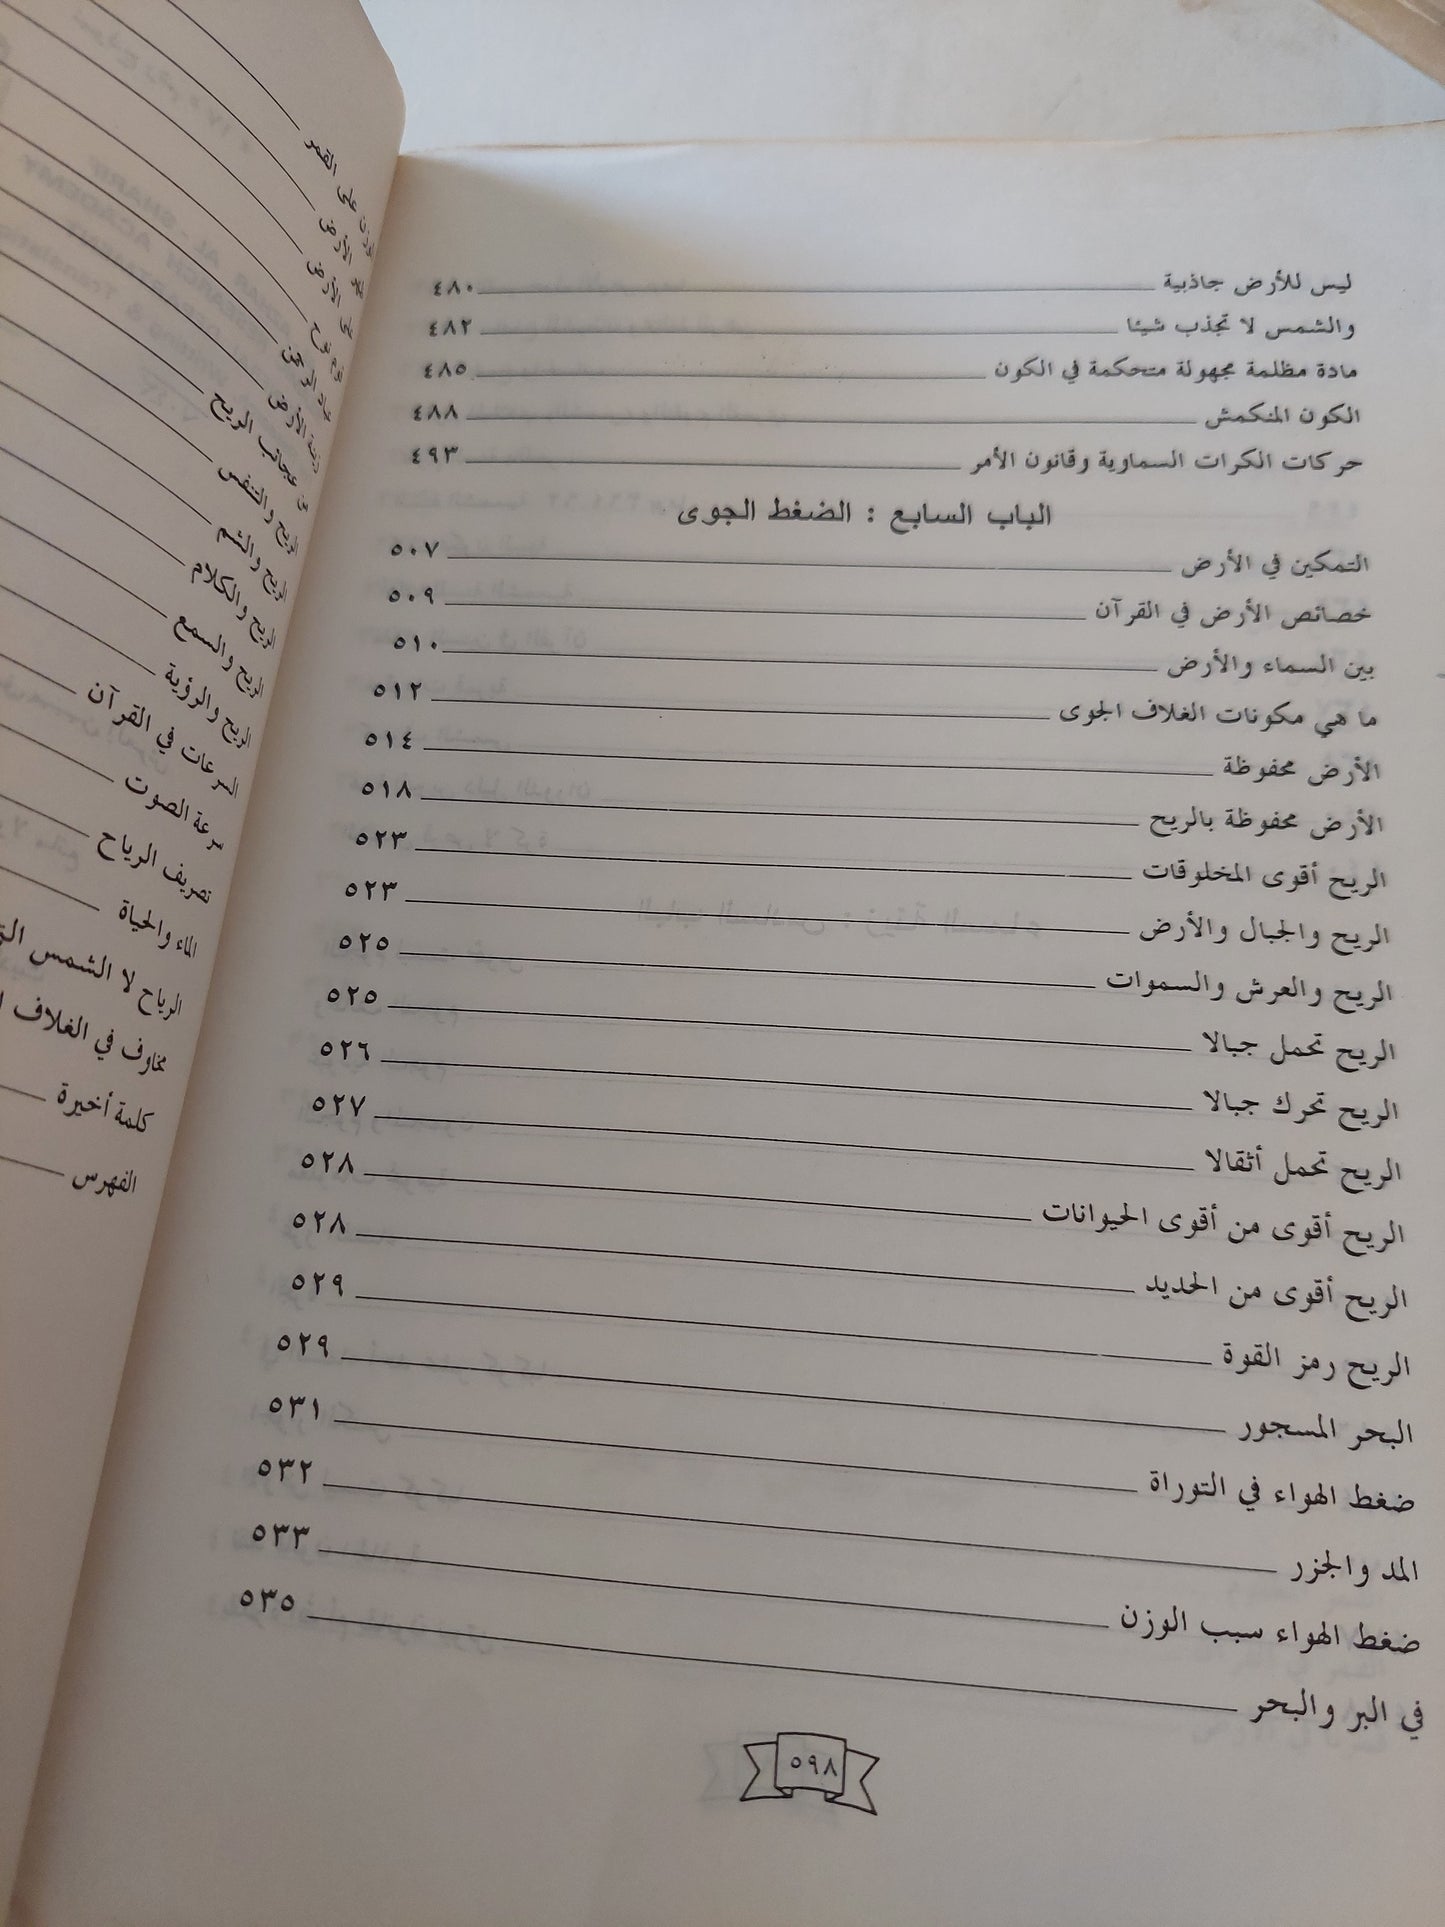 ليس للأرض جاذبية ٤٨٠
والشمس لا تجذب شيئا ٤٨٢
مادة مظلمة مجهولة متحكمة في الكون ٤٨٥
الكون المنكمش ٤٨٨
حركات الكرات السماوية وقانون الأمر ٤٩٣
الباب السابع : الضغط الجوى
التمكين في الأرض ٥٠٧
خصائص الأرض في القرآن ٥٠٩
بين السماء والأرض ٥١٠
ما هي مكونات الغلاف الجوى ٥١٢
الأرض محفوظة ٥١٤
الأرض محفوظة بالريح ٥١٨
الريح أقوى المخلوقات ٥٢٣
الريح والجبال والأرض ٥٢٣
الريح والعرش والسموات ٥٢٥
الريح تحمل جبالا ٥٢٥
الريح تحرك جبالا ٥٢٦
الريح تحمل أثقالا ٥٢٧
الريح أقوى من أقوى الحيوانات ٥٢٨
الريح أقوى من الحديد ٥٢٨
الريح رمز القوة ٥٢٩
البحر المسجور ٥٢٩
ضغط الهواء في التوراة ٥٣١
المد والجزر ٥٣٢
ضغط الهواء سبب الوزن ٥٣٣
في البر والبحر ٥٣٥
٥٩٨
على القمر
الأرض
على الأرض
الأرض
من عجائب الريح
الريح والتنفس
الريح والشم
الريح والكلام
الريح والسمع
الريح والرؤية
السرعات في القرآن
سرعة الصوت
تصريف الرياح
الماء والحياة
الرياح لا الشمس
مخاوف في الغلاف
كلمة أخيرة
الفهرس